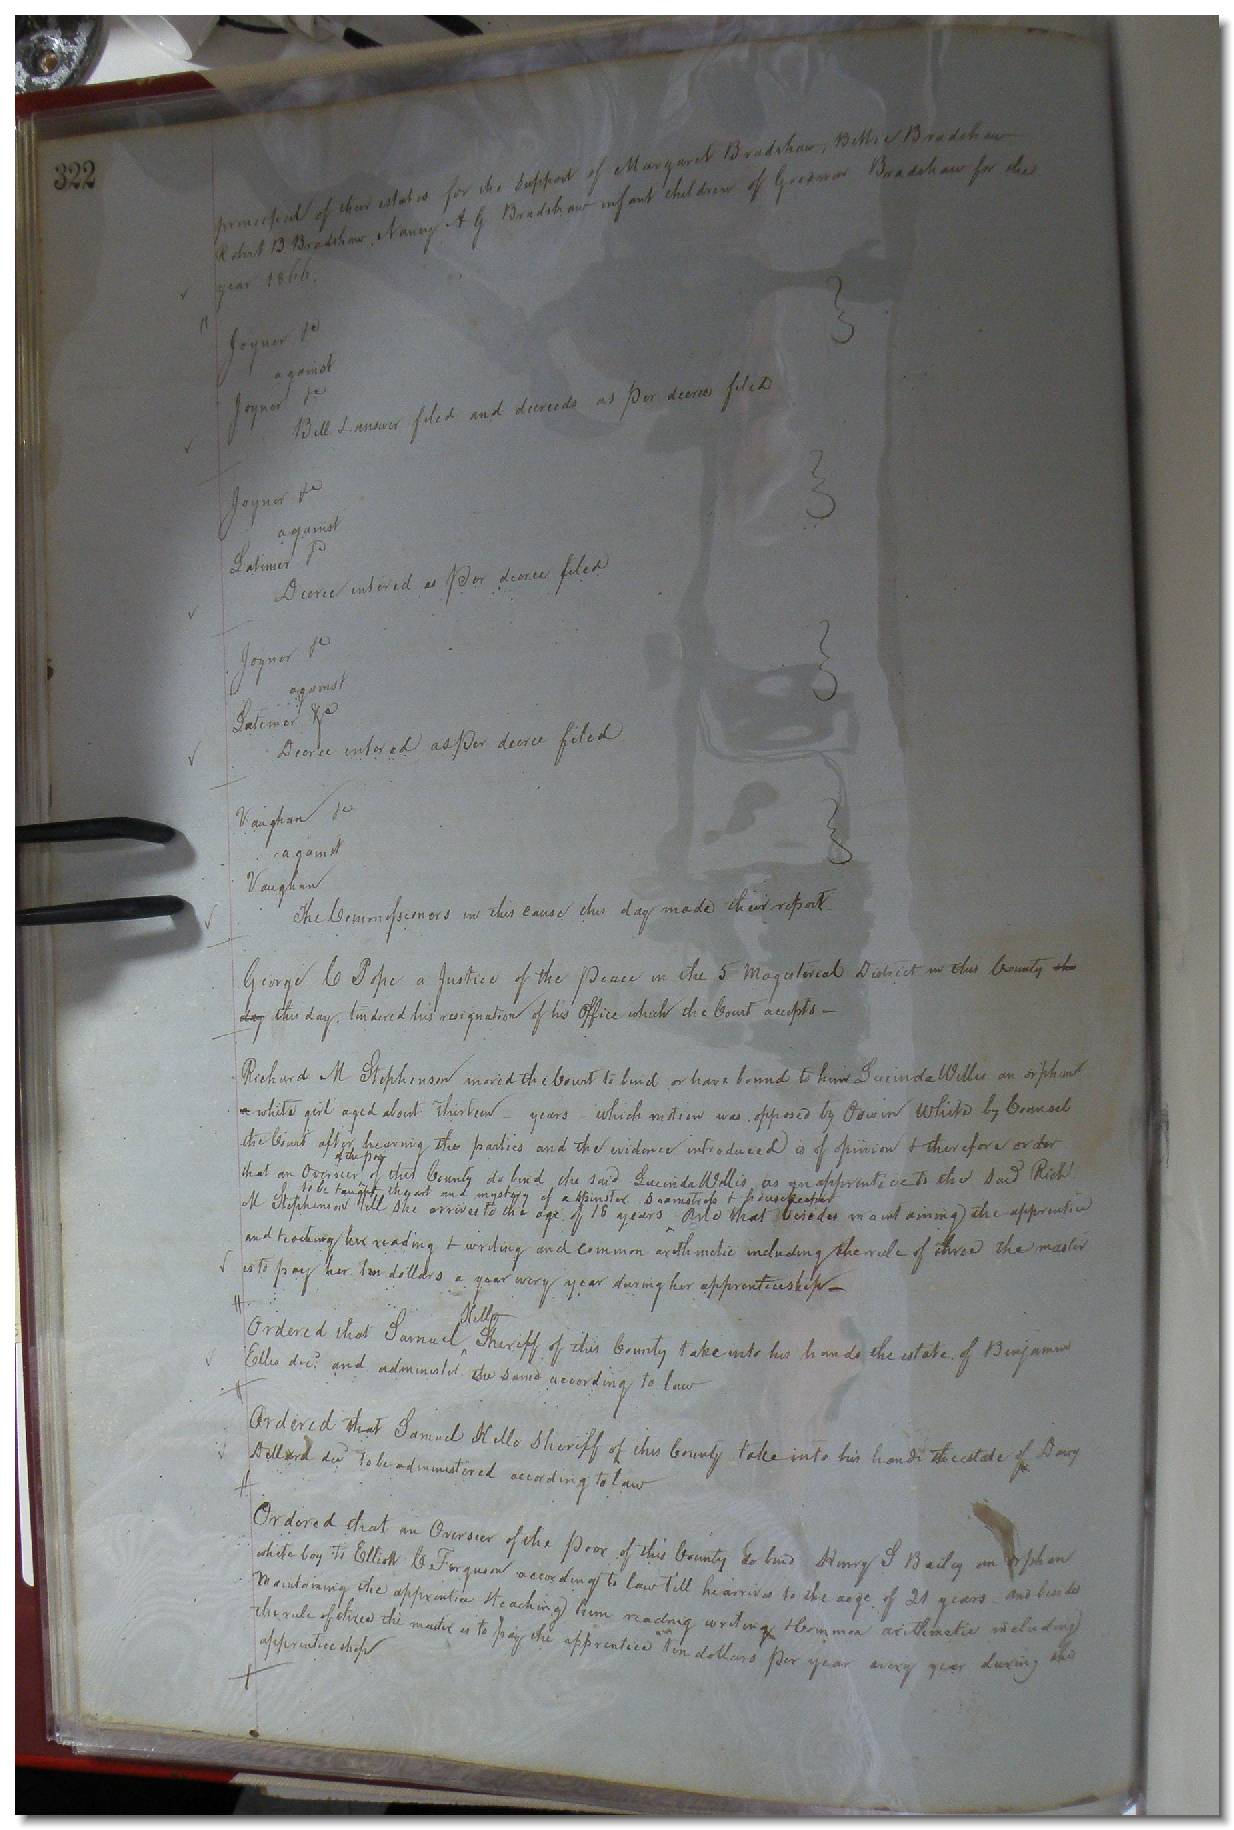 322
principal of their estates for the support of Margaret Bradshaw, Bettie Bradshaw
Robert B Bradshaw, Nancy A G Bradshaw infant children of Bradshaw for the
year 1866.
Joyner &c
against
Joyner &c
Bill & answer filed and decreeds as per decree filed
Joyner &c
against
Latimer &c
Decree entered as per decree filed
Joyner &c
against
Latimer &c
Decree entered as per decree filed
Vaughan &c
against
Vaughan
The Commissioners in this cause this day made their report
George C Pope a Justice of the Peace in the 5 Magisterial District in this County the
day this day, tendered his resignation of his Office which the Court accepts —
Richard M Stephenson moved the Court to bind or have bound to him Lucinda Willis an orphan
a white girl aged about Thirteen — years — which motion was opposed by White by Counsel
the Court after hearing the parties and the evidence introduced is of opinion & therefore order
of the poor
that an Overseer of this County do bind the said Lucinda Willis, as an apprentice to the said Rich
to be taught the art and mystery of a spinster seamstress & housekeeper
M Stephenson till she arrives to the age of 18 years And that besides maintaining the apprentice
and teaching her reading & writing and common arithmetic including the rule of three the master
is to pay her ten dollars a year every year during her apprenticeship —
Kello
Ordered that Samuel Sheriff of this County take into his hands the estate of Benjamin
Ellis decd. and administer the same according to law
Ordered that Samuel Kello Sheriff of this County take into his hands the estate of Davy
Dillard decd to be administered according to law
Ordered that an Overseer of the Poor of this County do bind Henry S Bailey an orphan
white boy to Elliott C Ferguson according to law till he arrives to the age of 21 years — and besides
maintaining the apprentice & teaching him reading writing & Common arithmetic including
the rule of three the master is to pay the apprentice ten dollars per year every year during the
apprenticeship